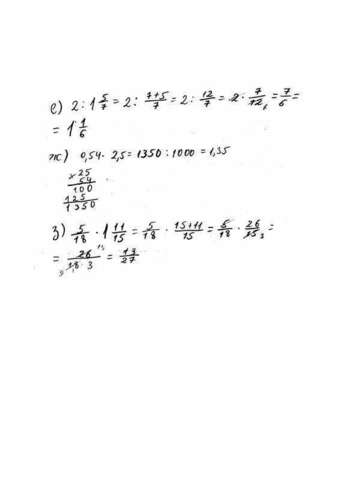 е) 2 : 1 5/7 = 2 : 7+5/7 = 2 : 12/7 = 2 · 7/12 6 = 7/6 =
= 1 1/6
ж) 0,54 · 2,5 = 1350 : 1000 = 1,35
× 25
54
100
125
1350
з) 5/18 · 1 11/15 = 5/18 · 15+11/15 = 5/18 · 26/15 3 =
= 26 13/18 9 · 3 = 13/27